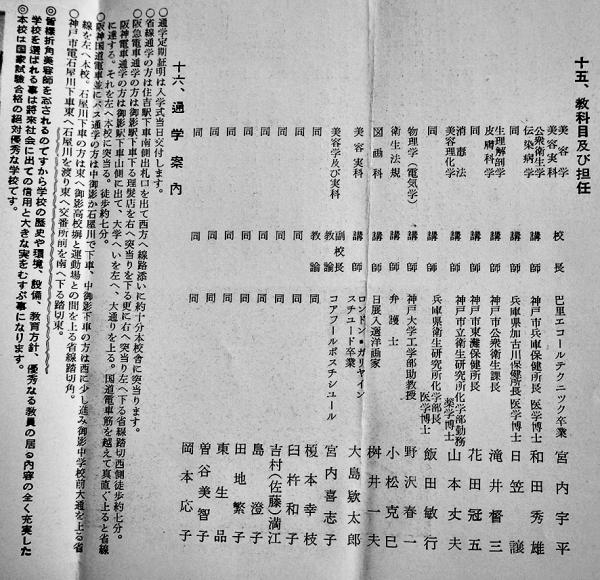 十五、教科目及び担任
美容学 美容実科 校長 巴里エコールテクニック卒業 宮内宇平
公衆衛生学 伝染病学 講師 神戸市兵庫保健所長 医学博士 和田秀雄
同 講師 兵庫県加古川保健所長 医学博士 日笠譲
生理解剖学 講師 神戸市公衆衛生課長 滝井督三
皮膚科学 講師 神戸市東灘保健所長 花田冠五
消毒法 美容理化学 講師 神戸市立衛生研究所化学部勤務 薬学博士 山本丈夫
同 講師 兵庫県衛生研究所化学部長 医学博士 飯田敏行
物理学(電気学) 講師 神戸大学工学部助教授 野沢春一
衛生法規 講師 弁護士 小松克巳
図画科 講師 日展入選洋画家 桝井一夫
美容実科 講師 ロンドン・ガリヤインスチュード卒業 大島欵太郎
美容学及び実科 副校長 教諭 コアフールポスチシュール 宮内喜志子
同 教諭 同 榎本幸枝
同 同 同 臼杵和子
同 同 同 吉村(佐藤)満江
同 同 同 島澄子
同 同 同 田地繁子
同 同 同 東生品
同 同 同 曽谷美智子
同 同 同 岡本応子
十六、通学案内
○通学定期証明は入学式当日交付します。
○省線通学の方は住吉駅下車南側出札口を出て西方へ線路添いに約十分本校舎に突当ります。
○阪急電車通学の方は御影駅下車下る理髪店を右へ突当りを下る更に右へ突当り左へ下る省線踏切西側徒歩約七分。
○阪神電車通学の方は御影駅下車山側に出て、大学へいを左へ、大通りを上る。国道電車筋を越えて真直ぐ上ると省線に達する。それを左へ本校に突当る。徒歩約七分。
○阪神国道電車並にバス通学の方は中御影か石屋川で下車、中御影下車の方は西に少し進み御影中学校前大通を上る省線を左へ本校。石屋川下車の方は東へ御影高校塀と運動場との間を上る省線踏切角。
○神戸市電石屋川下車東へ石屋川を渡り東へ交番所前を南へ下る踏切東。
◎皆様折角美容師を志されるのですから学校の歴史や環境、設備、教育方針、優秀なる教員の居る内容の全く充実した学校を選ばれる事は将来社会に出ての信用と大きな実をむすぶ事になります。
◎本校は国家試験合格の絶対優秀な学校です。